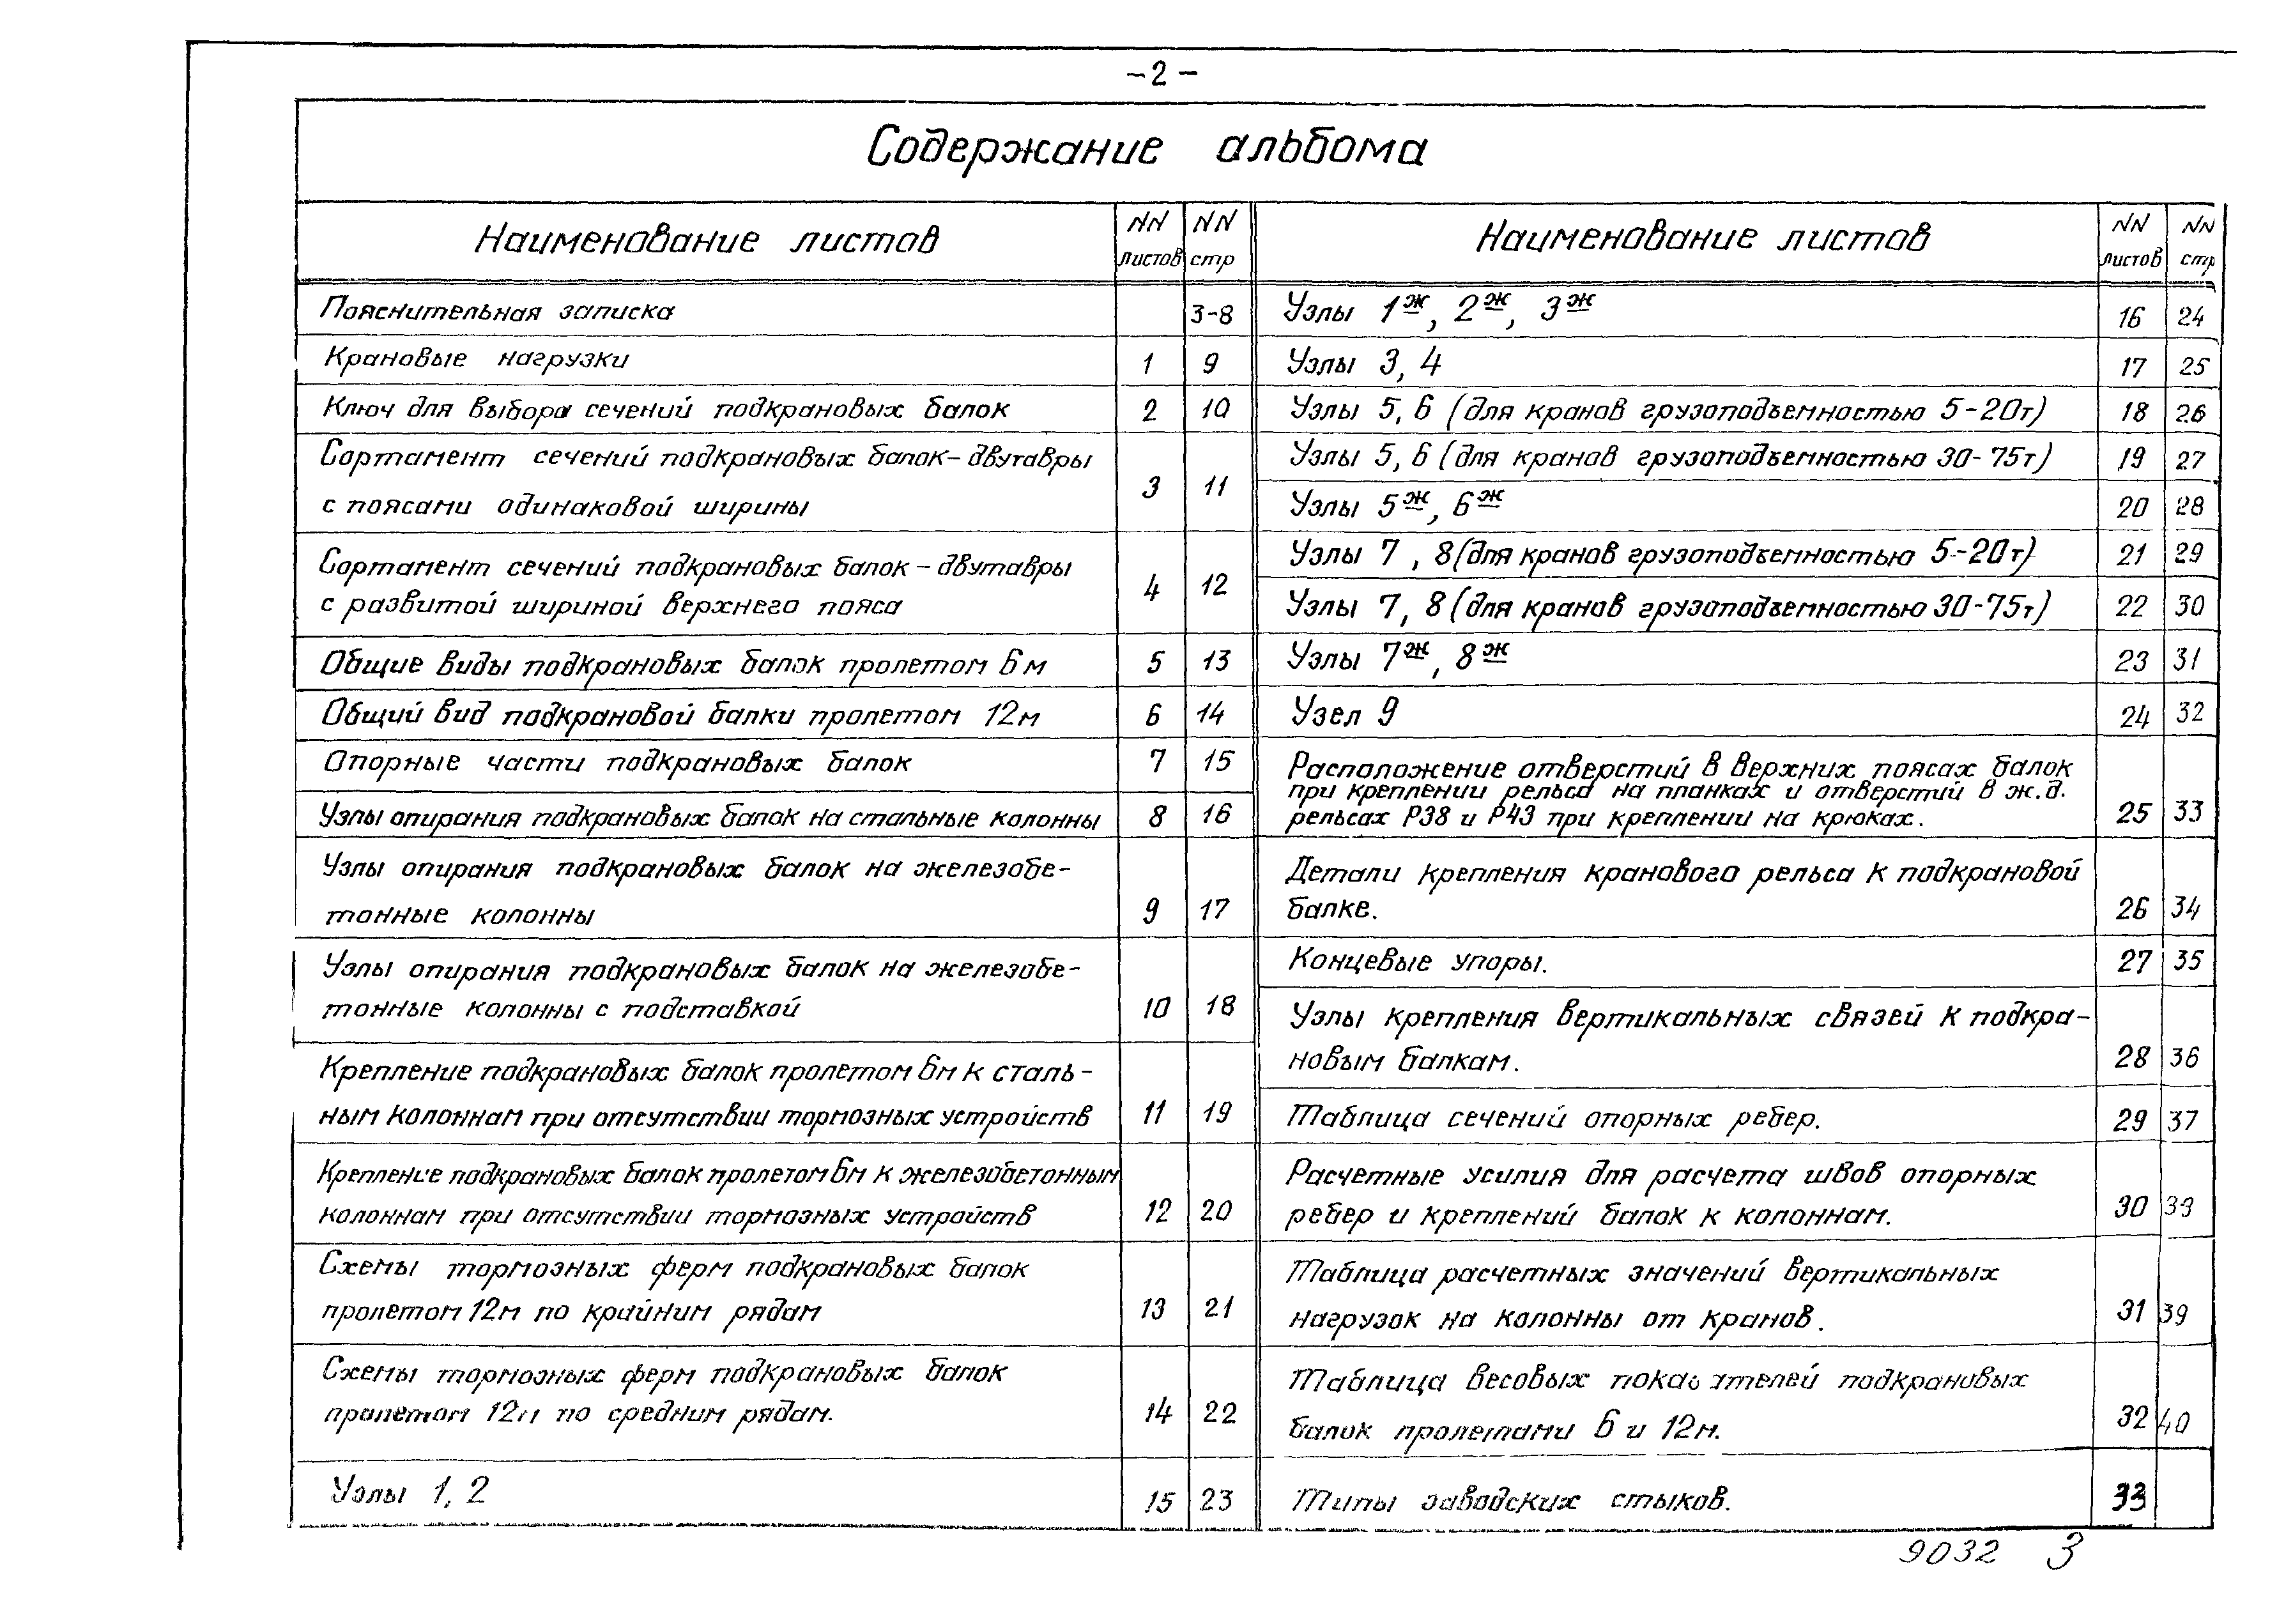 -2-
Содержание альбома
Наименование листов
NN листов
NN стр
Пояснительная записка 3-8
Крановые нагрузки 1 9
Ключ для выбора сечений подкрановых балок 2 10
Сортамент сечений подкрановых балок-двутавры
с поясами одинаковой ширины 3 11
Сортамент сечений подкрановых балок-двутавры
с развитой шириной верхнего пояса 4 12
Общие виды подкрановых балок пролетом 6м 5 13
Общий вид подкрановой балки пролетом 12м 6 14
Опорные части подкрановых балок 7 15
Узлы опирания подкрановых балок на стальные колонны 8 16
Узлы опирания подкрановых балок на железобе-
тонные колонны 9 17
Узлы опирания подкрановых балок на железобе-
тонные колонны с подставкой 10 18
Крепление подкрановых балок пролетом 6м к сталь-
ным колоннам при отсутствии тормозных устройств 11 19
Крепление подкрановых балок пролетом 6м к железобетонным
колоннам при отсутствии тормозных устройств 12 20
Схемы тормозных ферм подкрановых балок
пролетом 12м по крайним рядам 13 21
Схемы тормозных ферм подкрановых балок
пролетом 12м по средним рядам. 14 22
Узлы 1, 2 15 23
Наименование листов
NN листов
NN стр
Узлы 1ж, 2ж, 3ж 16 24
Узлы 3, 4 17 25
Узлы 5, 6 (для кранов грузоподъемностью 5-20т) 18 26
Узлы 5, 6 (для кранов грузоподъемностью 30-75т) 19 27
Узлы 5ж, 6ж 20 28
Узлы 7, 8 (для кранов грузоподъемностью 5-20т) 21 29
Узлы 7, 8 (для кранов грузоподъемностью 30-75т) 22 30
Узлы 7ж, 8ж 23 31
Узел 9 24 32
Расположение отверстий в верхних поясах балок
при креплении рельса на планках и отверстий в ж.д.
рельсах Р38 и Р43 при креплении на крюках. 25 33
Детали крепления кранового рельса к подкрановой
балке. 26 34
Концевые упоры. 27 35
Узлы крепления вертикальных связей к подкра-
новым балкам. 28 36
Таблица сечений опорных ребер. 29 37
Расчетные усилия для расчета швов опорных
ребер и креплений балок к колоннам. 30
Таблица расчетных значений вертикальных
нагрузок на колонны от кранов. 31 39
Таблица весовых показателей подкрановых
балок пролетами 6 и 12м. 32 40
Типы заводских стыков. 33
9032 3